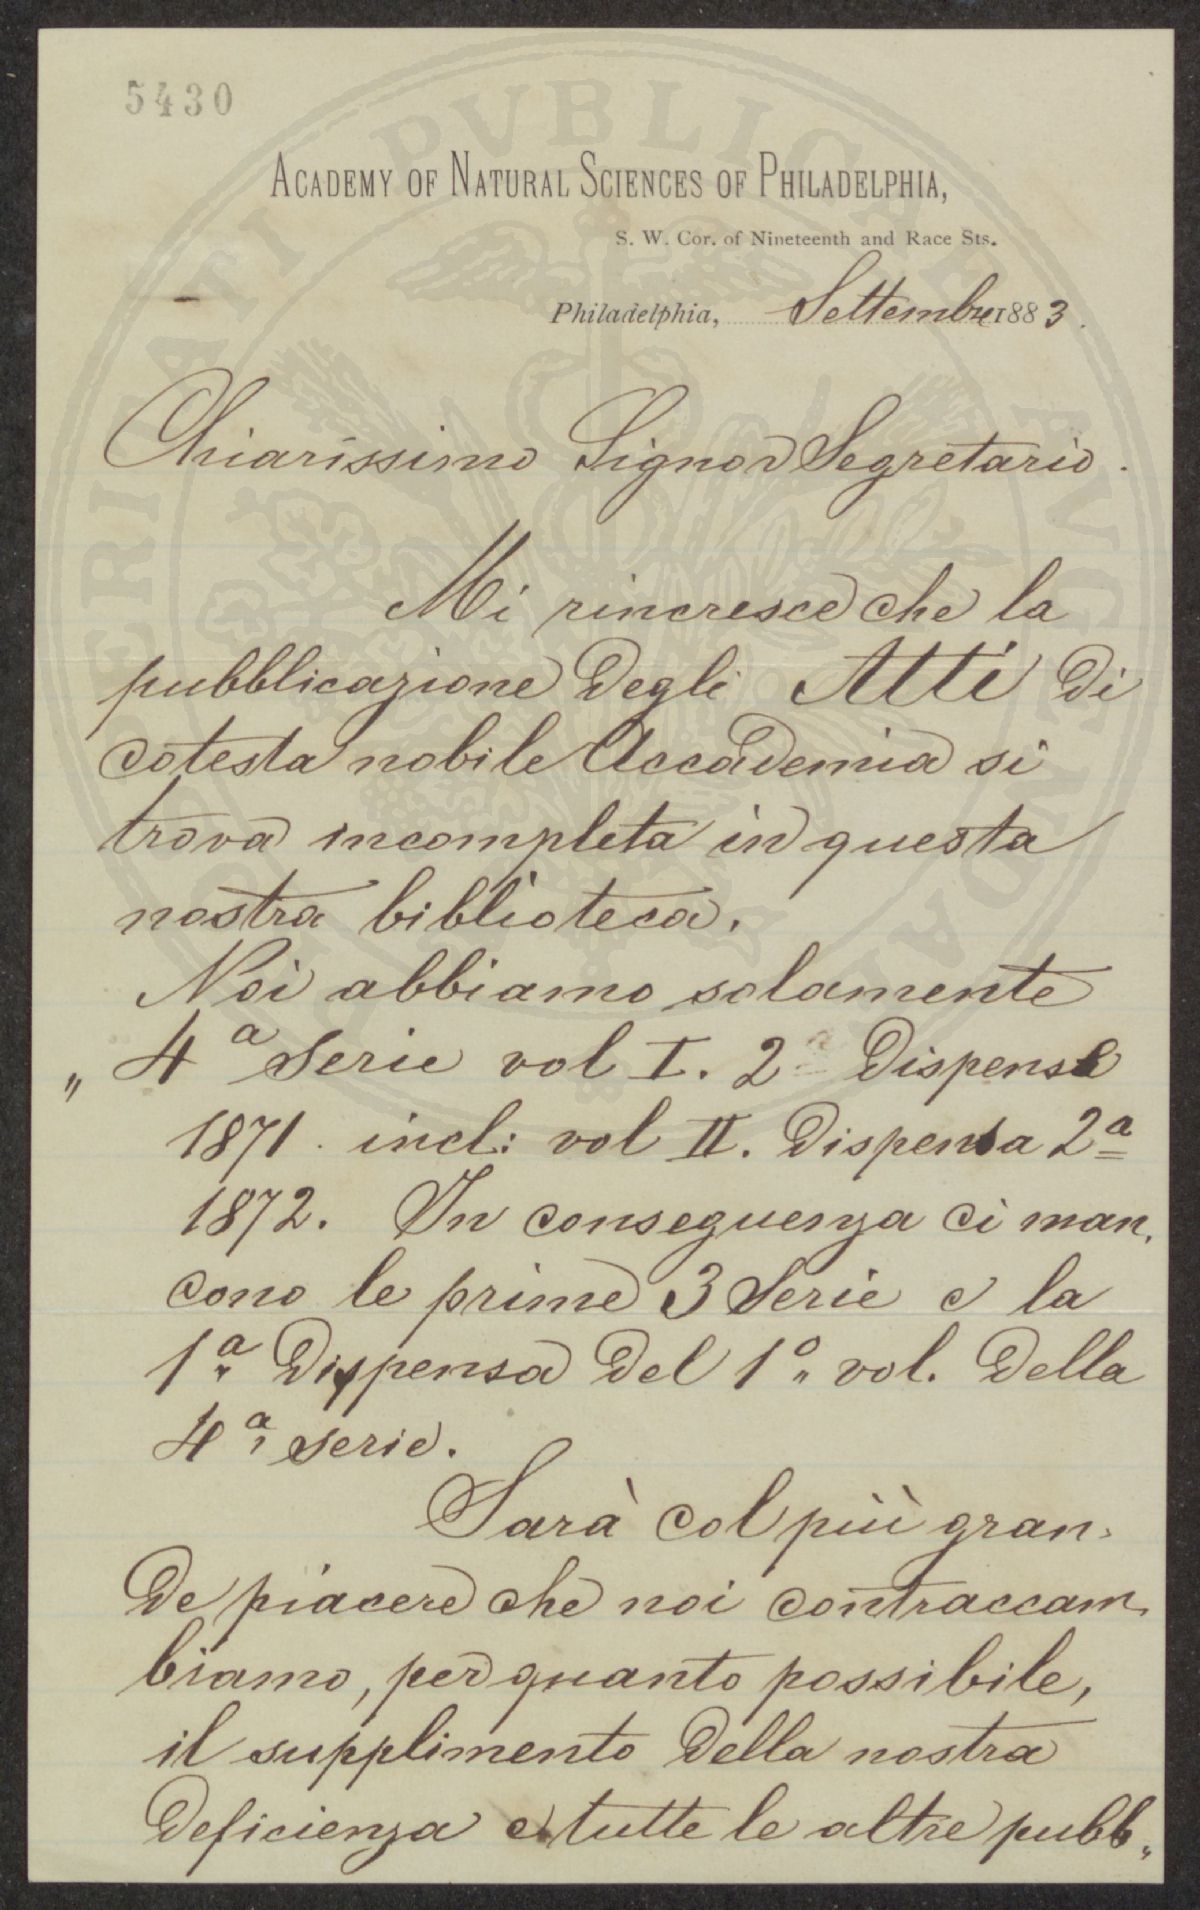 5430
ACADEMY OF NATURAL SCIENCES OF PHILADELPHIA,
S. W. Cor. of Nineteenth and Race Sts.
Philadelphia, Settembre 1883.
Chiarissimo Signor Segretario.
Mi rincresce che la
pubblicazione degli Atti di
cotesta nobile Accademia si
trova incompleta in questa
nostra biblioteca.
Noi abbiamo solamente
" 4a Serie vol I. 2a Dispense
1871. incl: vol II. Dispensa 2a
1872. In conseguenza ci man„
cono le prime 3 Serie e la
1a Dispensa del 1o vol. della
4a, serie.
Sarà col più gran„
de piacere che noi contraccam„
biamo, per quanto possibile,
il supplimento della nostra
deficienza e tutte le altre pubb„